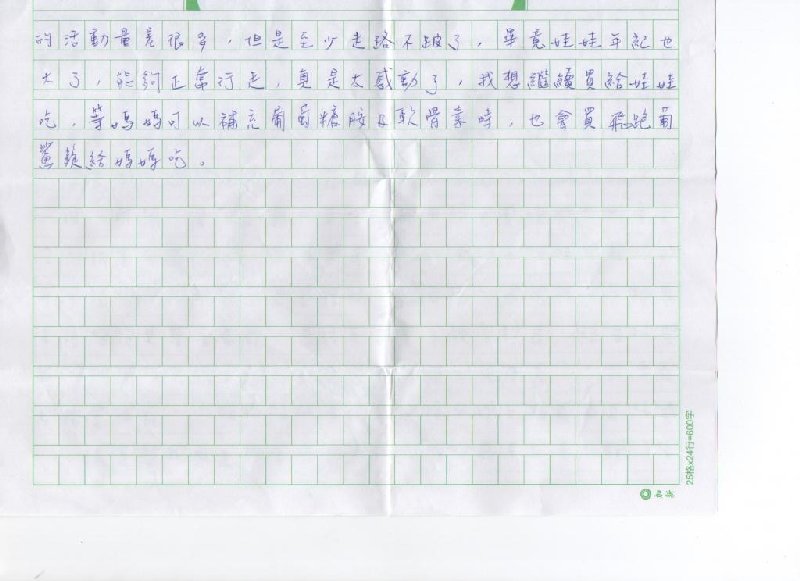 的活動量差很多，但是至少走路不跛了，畢竟娃娃年紀也
大了，能夠正常行走，真是太感動了，我想繼續買給娃娃
吃，等媽媽可以補充葡萄糖胺及軟骨素時，也會買飛跑葡
鯊鎂給媽媽吃。
25格x24行=600字